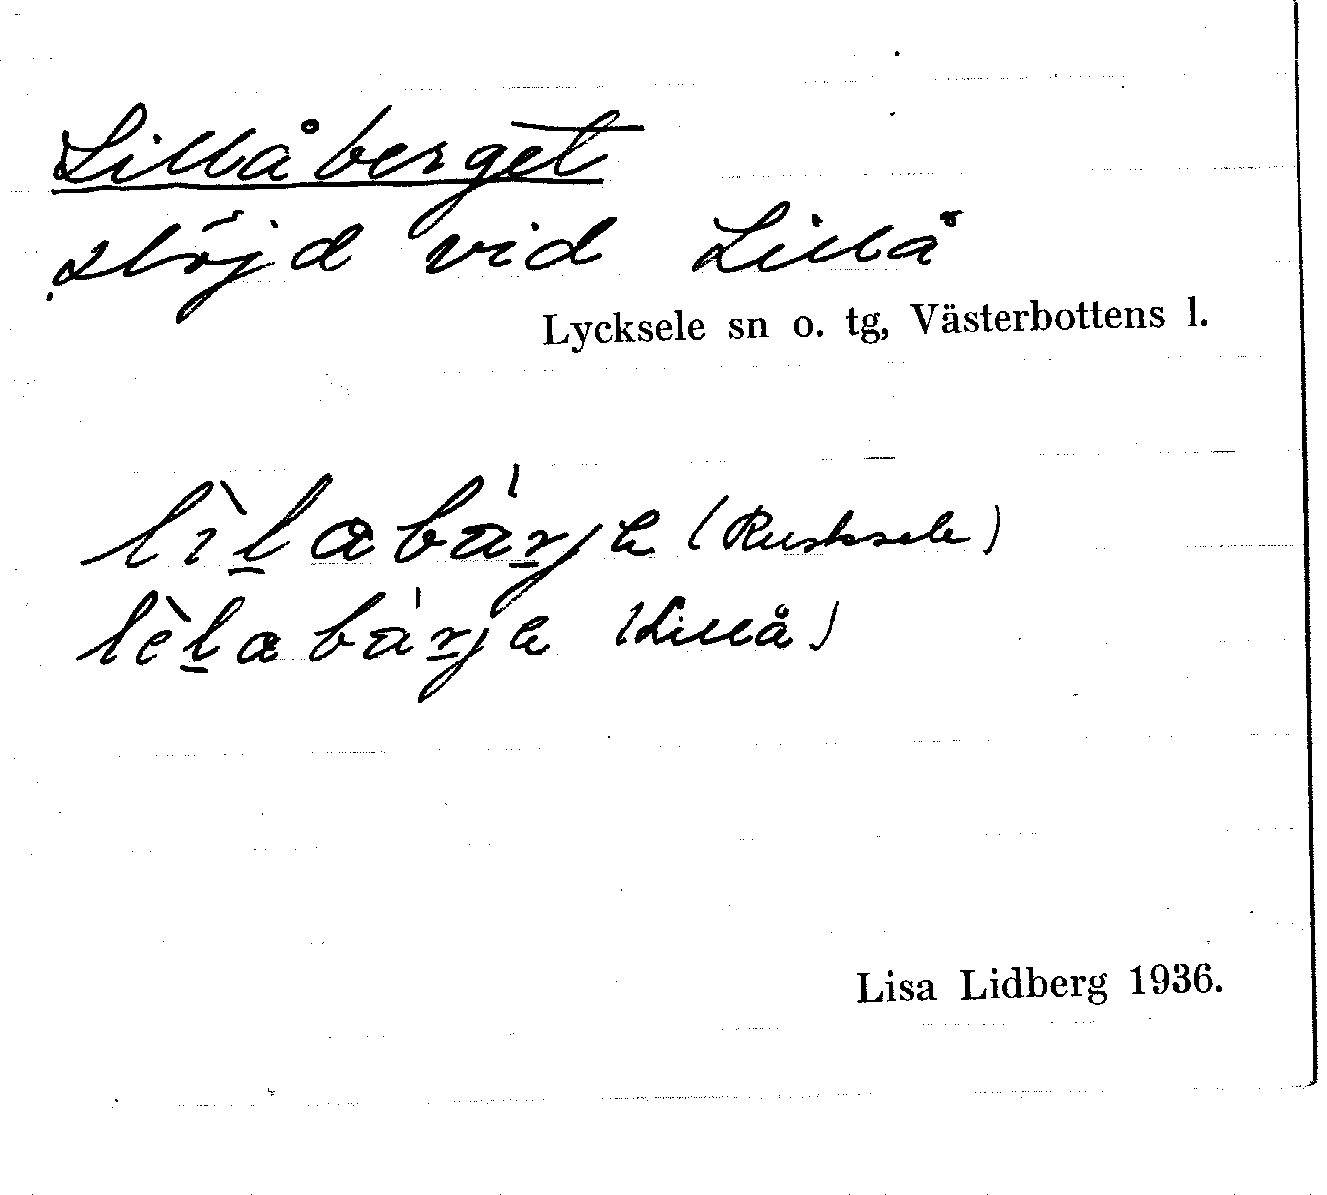 Lillåberget
slöjd vid Lillå
Lycksele sn o. tg, Västerbottens l.
lìḻabárj̱e (Rusksele)
lèḻabárj̱e (Lillå)
Lisa Lidberg 1936.